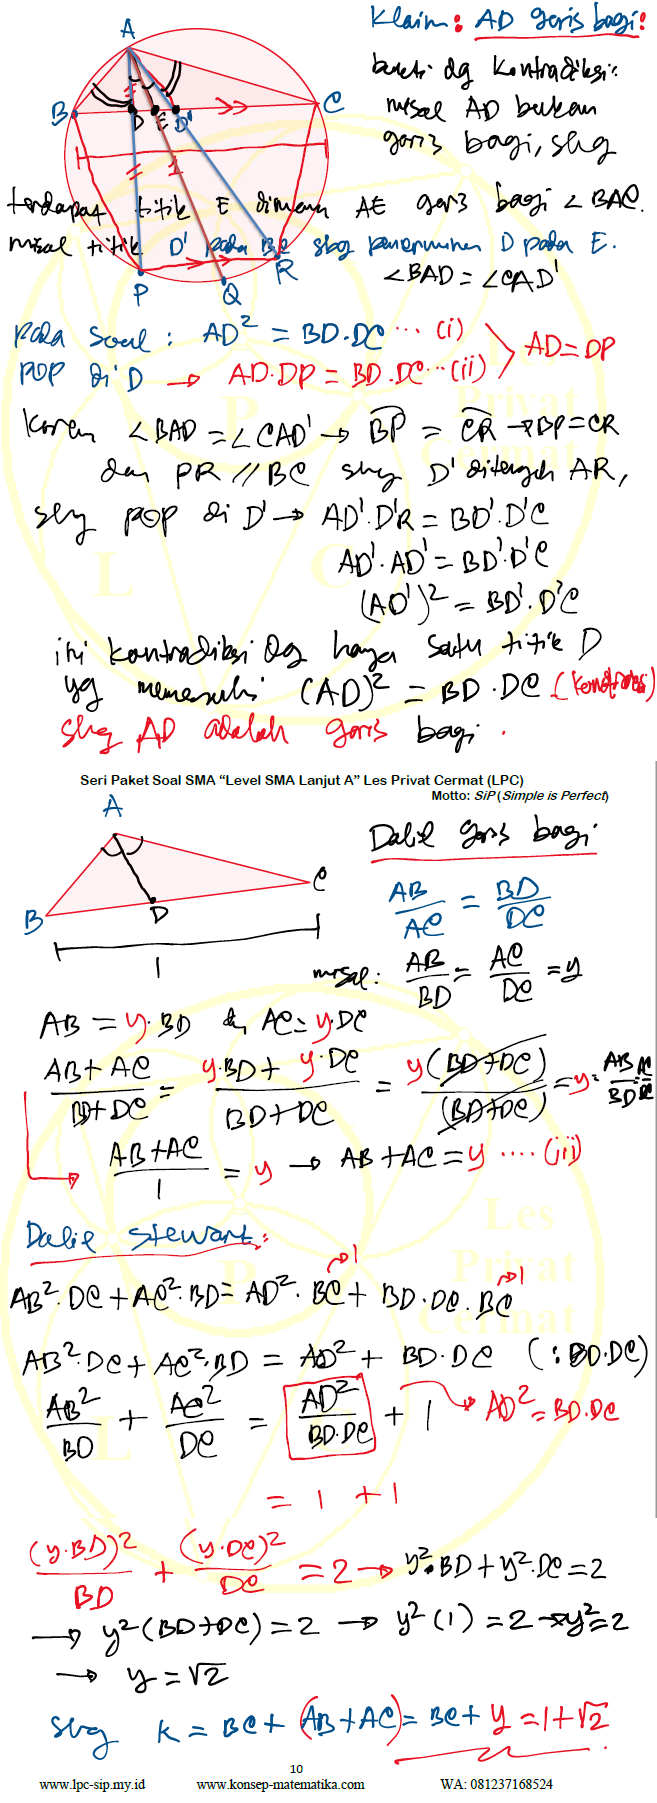 Klaim: AD garis bagi:
bukti dg kontradiksi:
misal AD bukan
garis bagi, shg
A
B
D
E
D'
C
=
=
1
terdapat titik E dimana AE garis bagi ∠BAC.
misal titik D' pada BC sbg pencerminan D pada E.
∠BAD = ∠CAD'
P
Q
R
pada soal: AD² = BD·DC ... (i)
POP di D → AD·DP = BD·DC ... (ii)
AD = DP
Karen ∠BAD = ∠CAD' → BP = CR → BP = CR
dan PR // BC shg D' ditengah AR,
shg POP di D' → AD'·D'R = BD'·D'C
AD'·AD' = BD'·D'C
(AD')² = BD'·D'C
ini kontradiksi dg hanya satu titik D
yg memenuhi (AD)² = BD·DC (kontradiksi)
shg AD adalah garis bagi.
Seri Paket Soal SMA “Level SMA Lanjut A” Les Privat Cermat (LPC)
Motto: SiP (Simple is Perfect)
A
B
D
C
1
Dalil garis bagi
AB/AC = BD/DC
misal: AB/BD = AC/DC = y
AB = y·BD & AC = y·DC
(AB+AC)/(BD+DC) = (y·BD + y·DC)/(BD+DC) = y(BD+DC)/(BD+DC) = y = AB/BD = AC/DC
(AB+AC)/1 = y → AB+AC = y .... (iii)
Les
Privat
Cermat
Dalil Stewart:
AB²·DC + AC²·BD = AD²·BC + BD·DC·BC
→1
→1
AB²·DC + AC²·BD = AD² + BD·DC (: BD·DC)
AB²/BD + AC²/DC = AD²/BD·DC + 1 → AD² = BD·DC
= 1 + 1
(y·BD)²/BD + (y·DC)²/DC = 2 → y²·BD + y²·DC = 2
→ y²(BD+DC) = 2 → y²(1) = 2 → y² = 2
→ y = √2
shg K = BC + (AB+AC) = BC + y = 1+√2
10
www.lpc-sip.my.id www.konsep-matematika.com WA: 081237168524